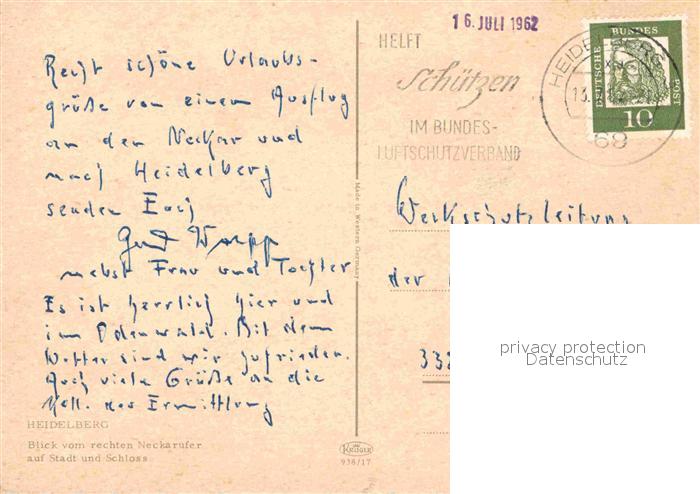 Recht schöne Urlaubs-
grüße von einem Ausflug
an den Neckar und
nach Heidelberg
senden Euch
Gerd
nebst Frau und Tochter
Es ist herrlich hier und
im Odenwald. Mit dem
Wetter sind wir zufrieden.
Auch viele Grüße an die
Koll. der Ermittlung
HEIDELBERG
Blick vom rechten Neckarufer
auf Stadt und Schloss
Made in Western Germany
KRÜGER
938/17
16. JULI 1962
HELFT
Schützen
IM BUNDES-
LUFTSCHUTZVERBAND
HEIDELBERG
13.
69
DEUTSCHE BUNDES POST
10
Werkschutzleitung
der
privacy protection
Datenschutz